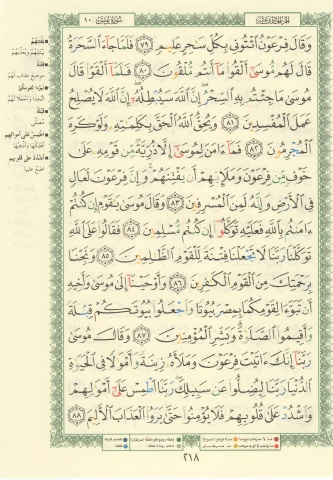 سورة يونس ١٠
وَقَالَ فِرْعَوْنُ ٱئْتُونِى بِكُلِّ سَٰحِرٍ عَلِيمٍ ٧٩ فَلَمَّا جَآءَ ٱلسَّحَرَةُ
قَالَ لَهُم مُّوسَىٰٓ أَلْقُوا۟ مَآ أَنتُم مُّلْقُونَ ٨٠ فَلَمَّآ أَلْقَوْا۟ قَالَ
مُوسَىٰ مَا جِئْتُم بِهِ ٱلسِّحْرُ إِنَّ ٱللَّهَ سَيُبْطِلُهُۥٓ إِنَّ ٱللَّهَ لَا يُصْلِحُ
عَمَلَ ٱلْمُفْسِدِينَ ٨١ وَيُحِقُّ ٱللَّهُ ٱلْحَقَّ بِكَلِمَٰتِهِۦ وَلَوْ كَرِهَ
ٱلْمُجْرِمُونَ ٨٢ فَمَآ ءَامَنَ لِمُوسَىٰٓ إِلَّا ذُرِّيَّةٌ مِّن قَوْمِهِۦ عَلَىٰ
خَوْفٍ مِّن فِرْعَوْنَ وَمَلَإِي۟هِمْ أَن يَفْتِنَهُمْ وَإِنَّ فِرْعَوْنَ لَعَالٍ
فِى ٱلْأَرْضِ وَإِنَّهُۥ لَمِنَ ٱلْمُسْرِفِينَ ٨٣ وَقَالَ مُوسَىٰ يَٰقَوْمِ إِن كُنتُمْ
ءَامَنتُم بِٱللَّهِ فَعَلَيْهِ تَوَكَّلُوٓا۟ إِن كُنتُم مُّسْلِمِينَ ٨٤ فَقَالُوا۟ عَلَى ٱللَّهِ
تَوَكَّلْنَا رَبَّنَا لَا تَجْعَلْنَا فِتْنَةً لِّلْقَوْمِ ٱلظَّٰلِمِينَ ٨٥ وَنَجِّنَا
بِرَحْمَتِكَ مِنَ ٱلْقَوْمِ ٱلْكَٰفِرِينَ ٨٦ وَأَوْحَيْنَآ إِلَىٰ مُوسَىٰ وَأَخِيهِ
أَن تَبَوَّءَا لِقَوْمِكُمَا بِمِصْرَ بُيُوتًا وَٱجْعَلُوا۟ بُيُوتَكُمْ قِبْلَةً
وَأَقِيمُوا۟ ٱلصَّلَوٰةَ وَبَشِّرِ ٱلْمُؤْمِنِينَ ٨٧ وَقَالَ مُوسَىٰ
رَبَّنَآ إِنَّكَ ءَاتَيْتَ فِرْعَوْنَ وَمَلَأَهُۥ زِينَةً وَأَمْوَٰلًا فِى ٱلْحَيَوٰةِ
ٱلدُّنْيَا رَبَّنَا لِيُضِلُّوا۟ عَن سَبِيلِكَ رَبَّنَا ٱطْمِسْ عَلَىٰٓ أَمْوَٰلِهِمْ
وَٱشْدُدْ عَلَىٰ قُلُوبِهِمْ فَلَا يُؤْمِنُوا۟ حَتَّىٰ يَرَوُا۟ ٱلْعَذَابَ ٱلْأَلِيمَ ٨٨
٢١٨